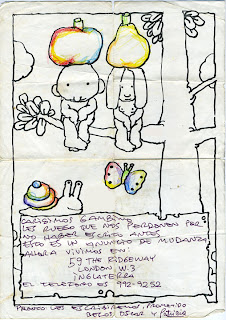 CARISIMOS GAMBINO
LES RUEGO QUE NOS PERDONEN POR
NO HABER ESCRITO ANTES
ESTO ES UN ANUNCIO DE MUDANZA
AHORA VIVIMOS EN:
59 THE RIDGEWAY
LONDON W.3
INGLATERRA
EL TELEFONO ES 992-9252
PRONTO LES ESCRIBIREMOS, PROMETIDO
BESOS OSCAR Y Patricia